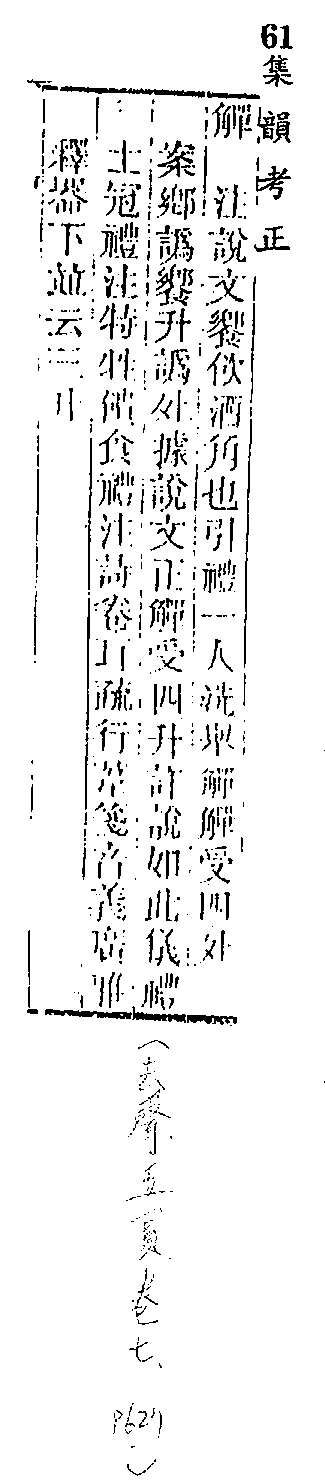 61
集韻考正
觶 注說文饗飲酒角也引禮一人洗舉觶觶受四升
案鄉譌饗升譌外據說文正觶受四升許說如此儀禮
士冠禮注特牲饋食禮注詩卷耳疏行葦箋音義廣雅
釋器下並云三升
(去聲五寘卷七、
P627)